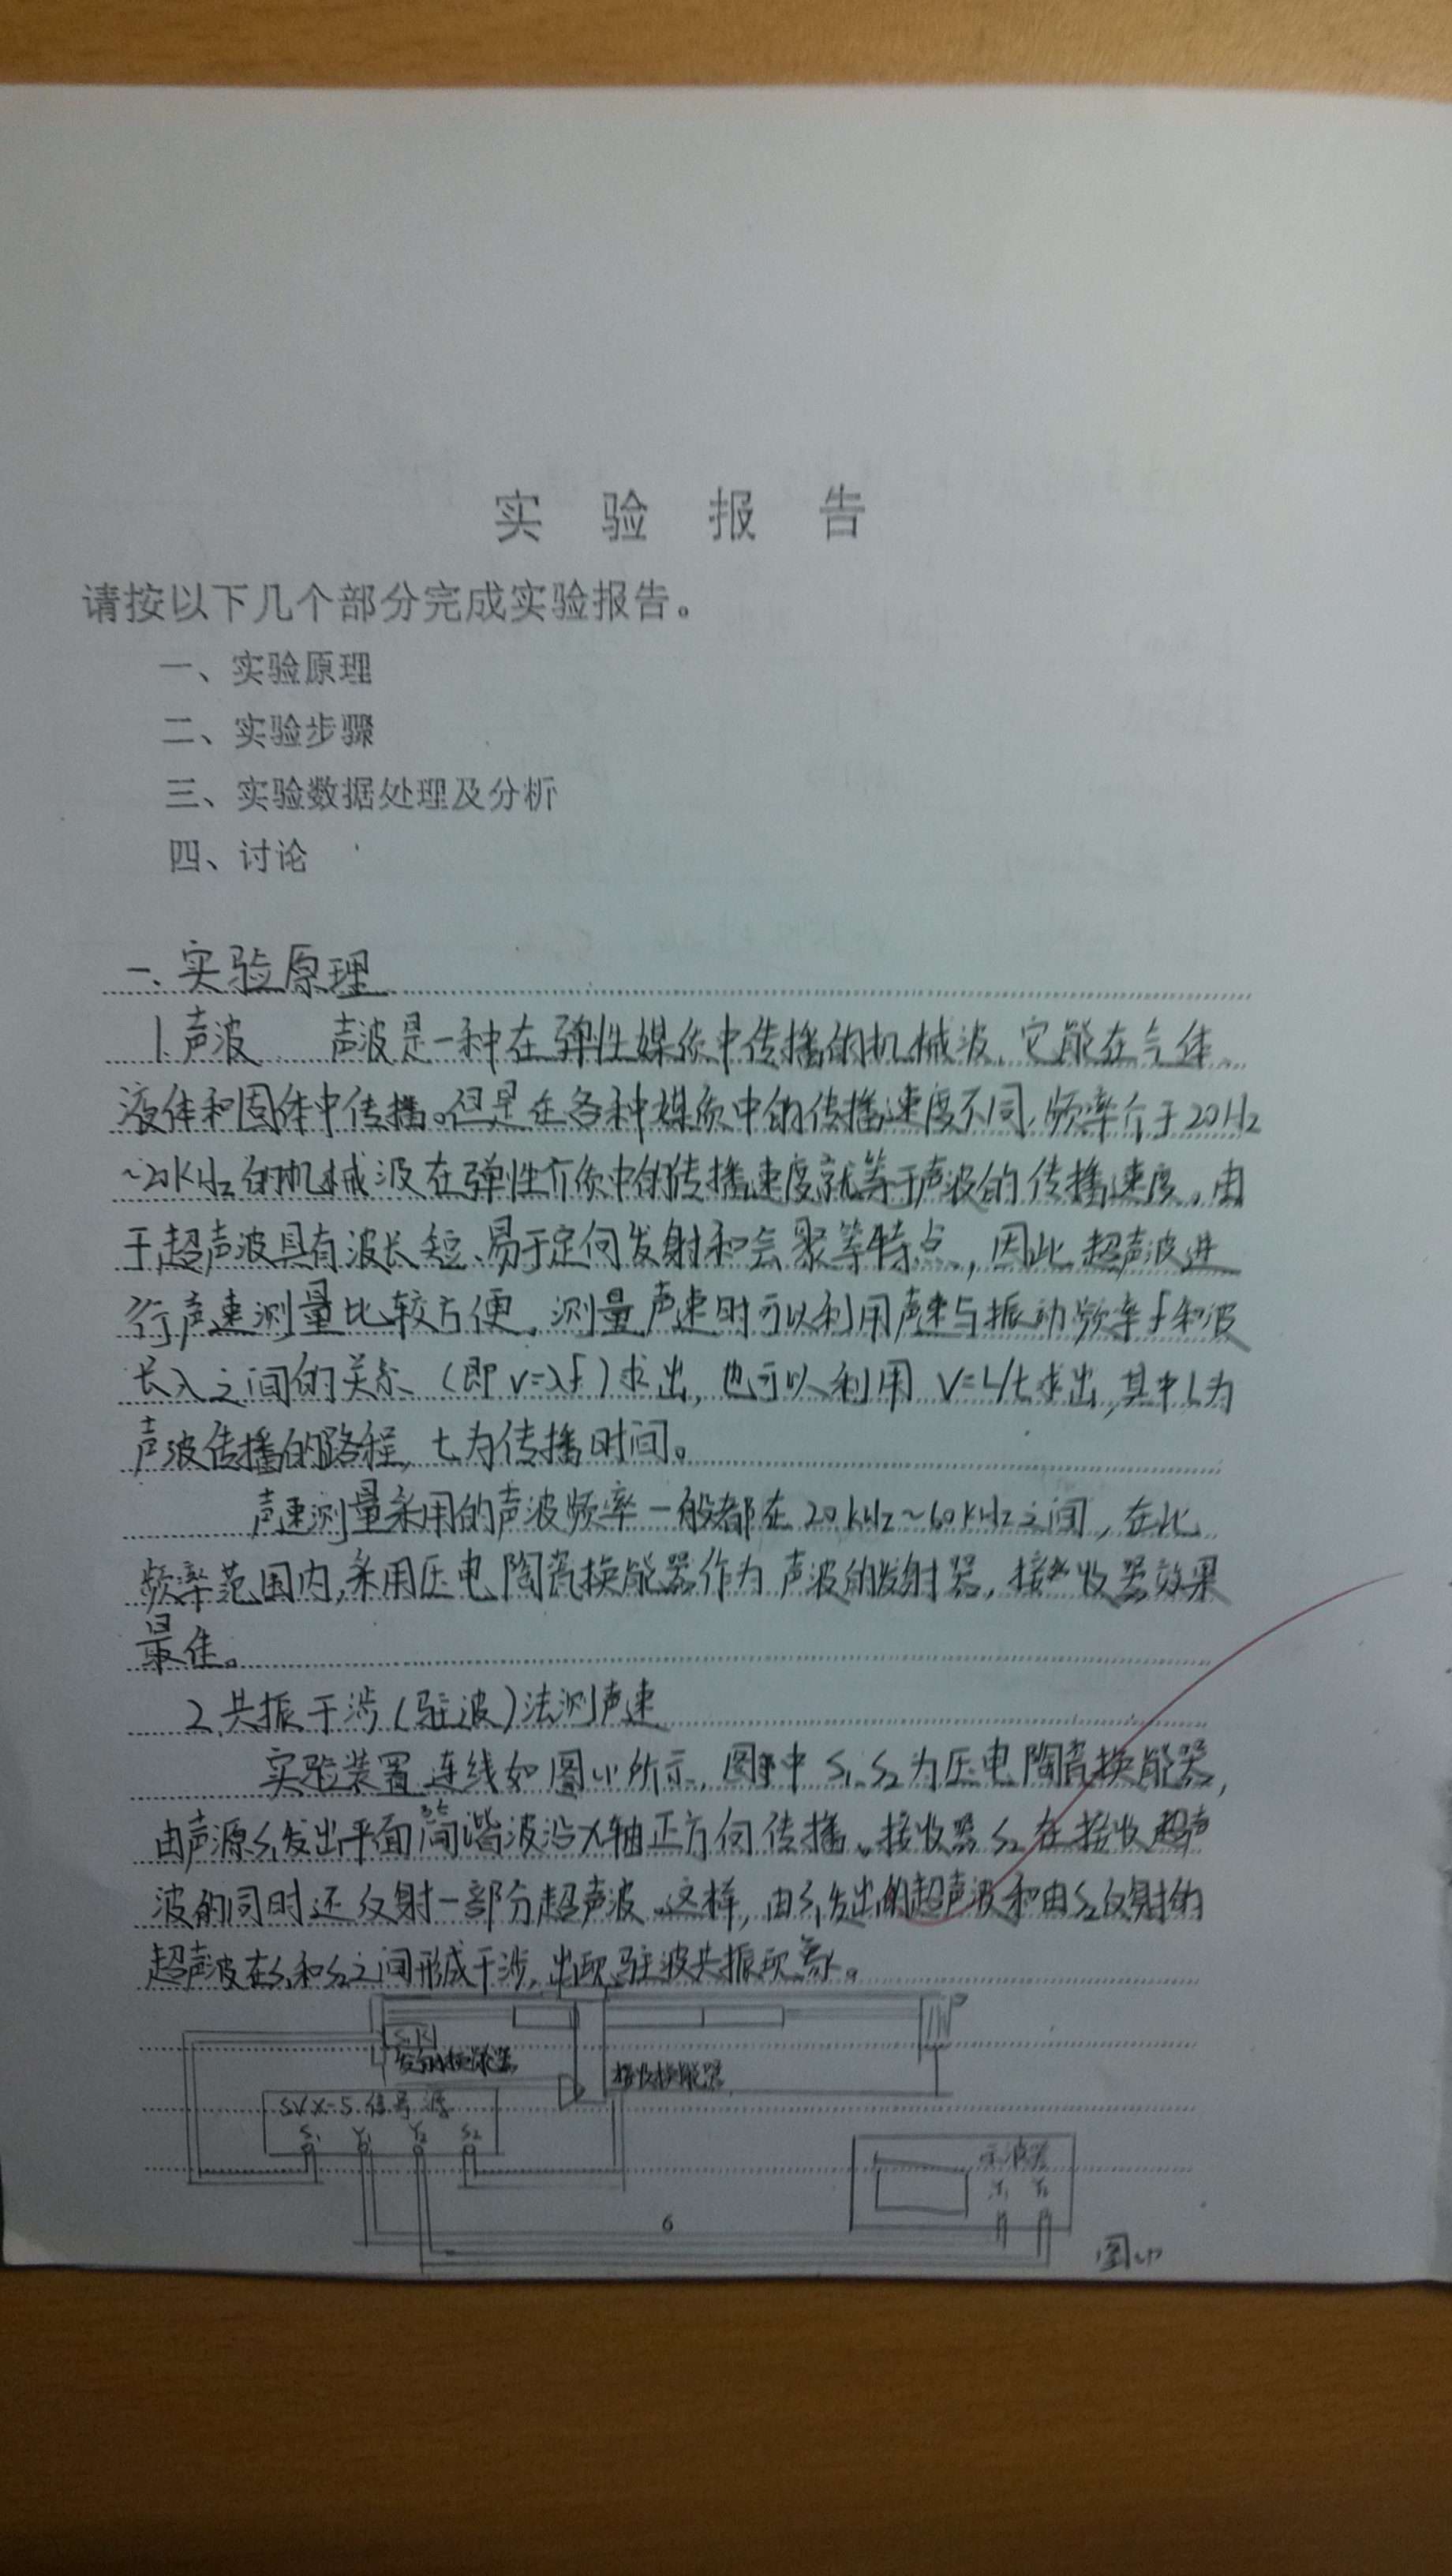 实 验 报 告
请按以下几个部分完成实验报告。
一、实验原理
二、实验步骤
三、实验数据处理及分析
四、讨论
一、实验原理
1.声波 声波是一种在弹性媒质中传播的机械波,它能在气体、
液体和固体中传播。但是在各种媒质中的传播速度不同,频率介于20Hz
~20kHz的机械波在弹性介质中的传播速度就等于声波的传播速度,由
于超声波具有波长短、易于定向发射和会聚等特点,因此超声波进
行声速测量比较方便。测量声速时可以利用声速与振动频率f和波
长λ之间的关系(即v=λf)求出,也可以利用 V=L/t求出,其中L为
声波传播的路程,t为传播时间。
声速测量采用的声波频率一般都在20kHz~60kHz之间,在此
频率范围内,采用压电陶瓷换能器作为声波的发射器,接收器效果
最佳。
2.共振干涉(驻波)法测声速
实验装置连线如图(1)所示,图中S1、S2为压电陶瓷换能器,
由声源S1发出平面简谐波沿X轴正方向传播。接收器S2在接收超声
波的同时还反射一部分超声波。这样,由S1发出的超声波和由S2反射的
超声波在S1和S2之间形成干涉,出现驻波共振现象。
S1
发射换能器
接收换能器
SVX-5信号源
S1 Y1 Y2 S2
示波器
Y1 Y2
6
图(1)